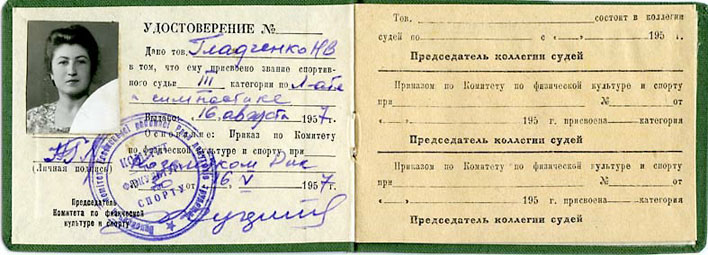 УДОСТОВЕРЕНИЕ №
Дано тов. Гладченко НВ
в том, что ему присвоено звание спортив-
ного судьи III категории по
Выдано: 16 августа 1957.
Основание: Приказ по Комитету
по физической культуре и спорту при
(Личная подпись)
16 V 1957 г.
КОМІТЕТ
СПОРТУ
Председатель
Комитета по физической
культуре и спорту
Тов. состоит в коллегии
судей по с « » 195 г.
Председатель коллегии судей
Приказом по Комитету по физической культуре и спорту
при № от
« » 195 г. присвоена категория
Председатель коллегии судей
Приказом по Комитету по физической культуре и спорту
при № от
« » 195 г. присвоена категория
Председатель коллегии судей